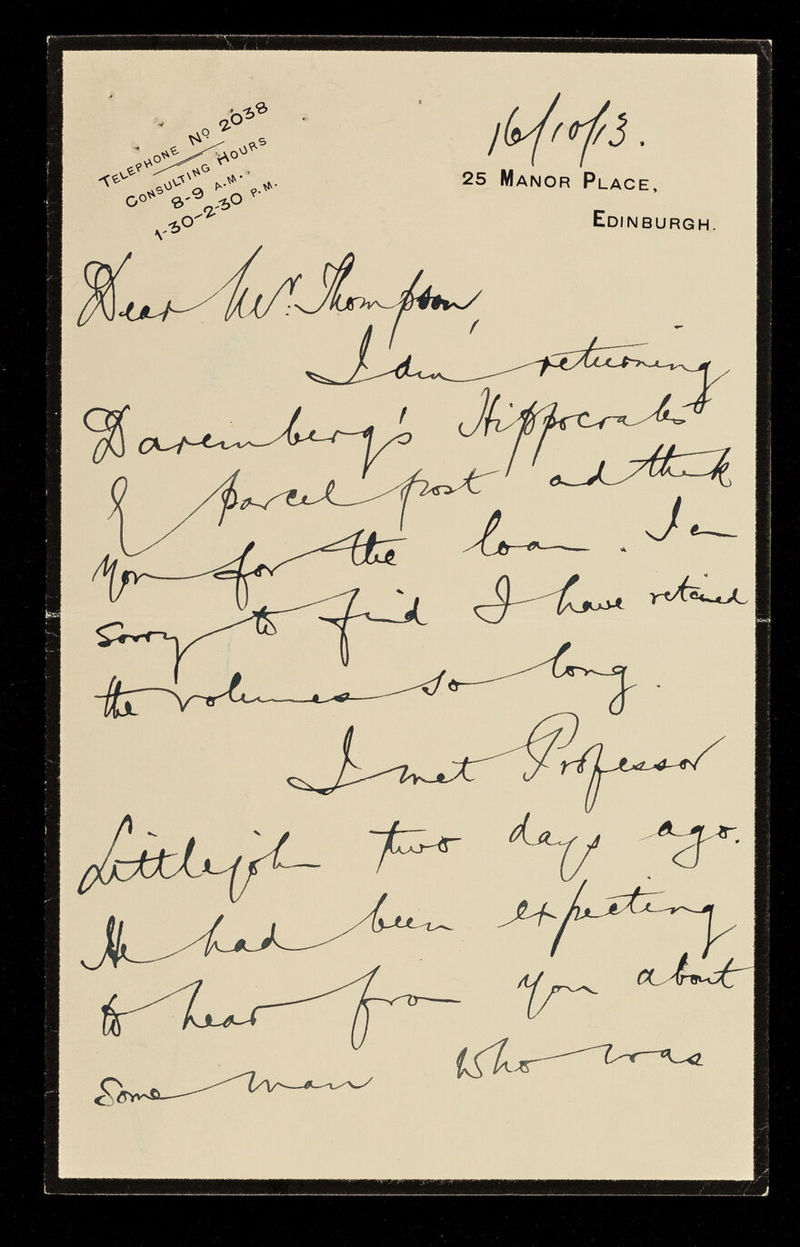 TELEPHONE Nº 2038
CONSULTING HOURS
8-9 A.M.
1-30-2-30 P.M.
16/10/13.
25 MANOR PLACE,
EDINBURGH.
Dear Mr. Thompson,
I am returning
Daremberg's Hippocrates
by parcel post and thank
you for the loan. I am
sorry to find I have retained
the volumes so long.
I met Professor
Littlejohn two days ago.
He had been expecting
to hear from you about
some man who was